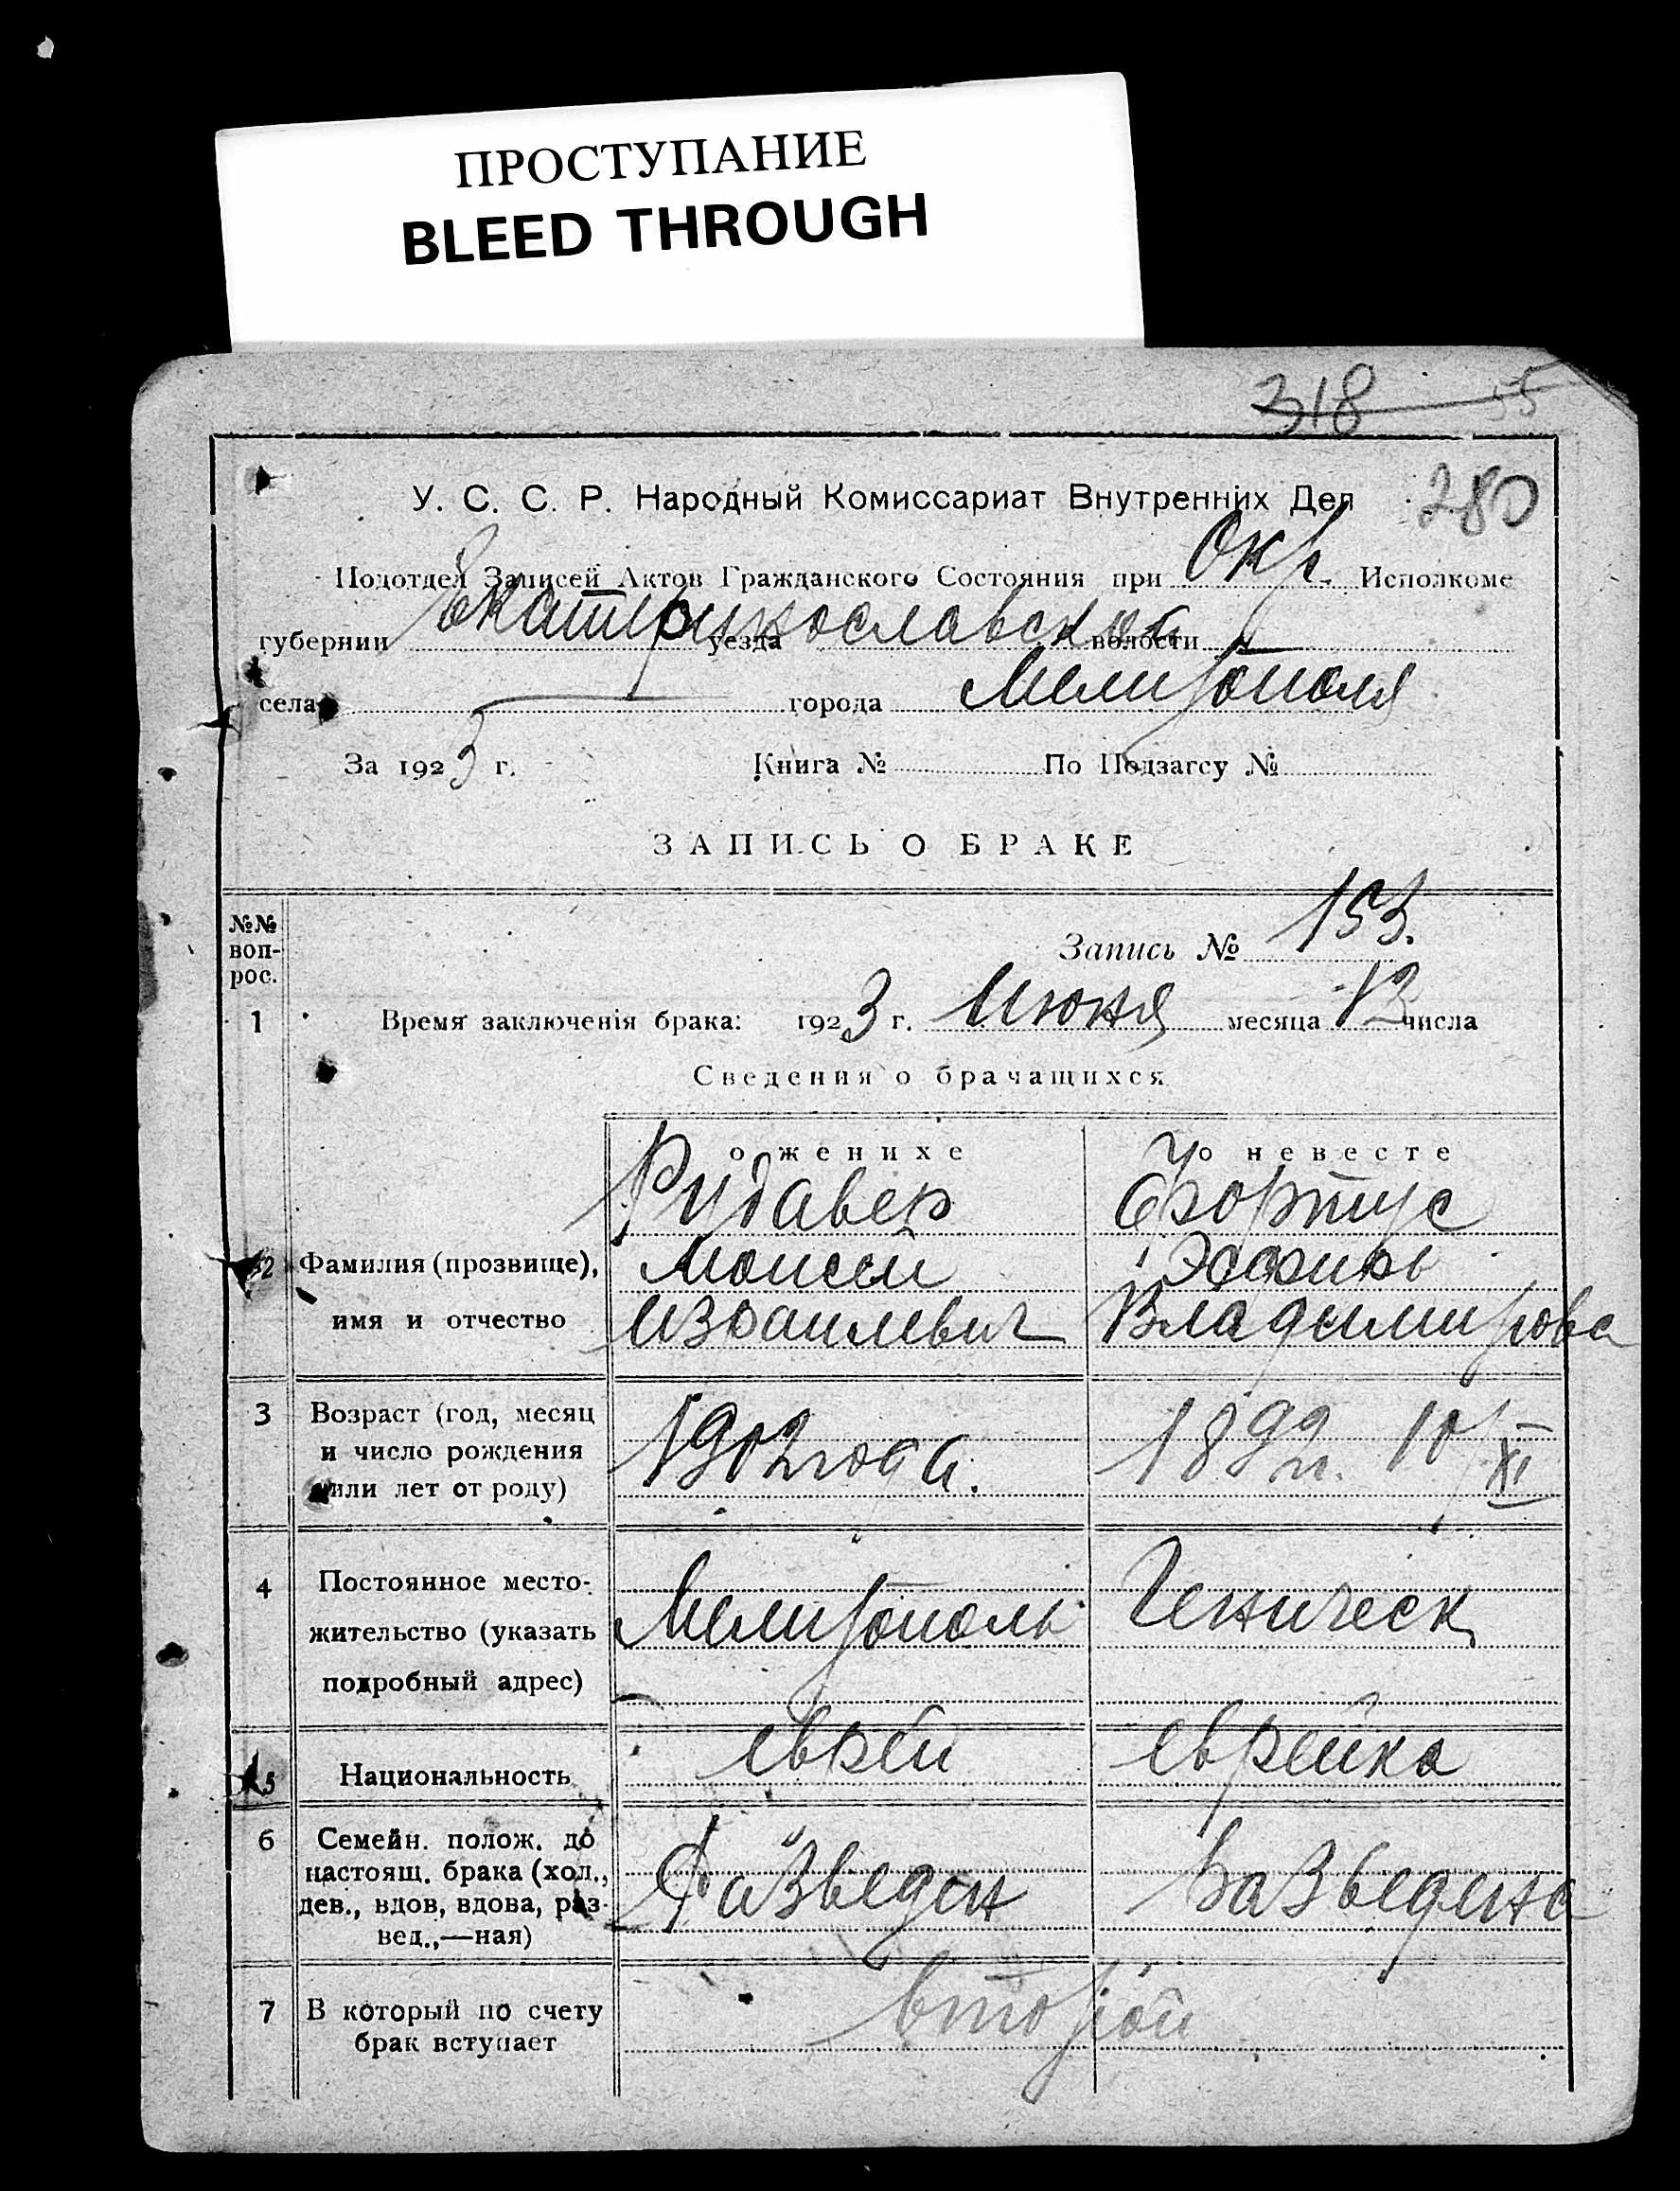 ПРОСТУПАНИЕ
BLEED THROUGH
318 55
280
У. С. С. Р. Народный Комиссариат Внутренних Дел
Подотдел Записей Актов Гражданского Состояния при Окр. Исполкоме
губернии Екатеринославской уезда волости
села города Мелитополя
За 1923 г. Книга № По Подзагсу №
ЗАПИСЬ О БРАКЕ
№№ воп-
рос.
Запись № 153.
1 Время заключенія брака: 1923 г. Июня месяца 13 числа
Сведения о брачащихся
о женихе о невесте
Рудавер Фортус
2 Фамилия (прозвище), Моисей Эсфирь
имя и отчество Израилевич Владимирова
3 Возраст (год, месяц
и число рождения 1902 года. 1899 г. 10/XI
или лет от роду)
4 Постоянное место-
жительство (указать Мелитополь Геническ
подробный адрес)
5 Национальность еврей еврейка
6 Семейн. полож. до
настоящ. брака (хол.,
дев., вдов, вдова, раз- Разведен Разведена
вед.,—ная)
7 В который по счету второй
брак вступает